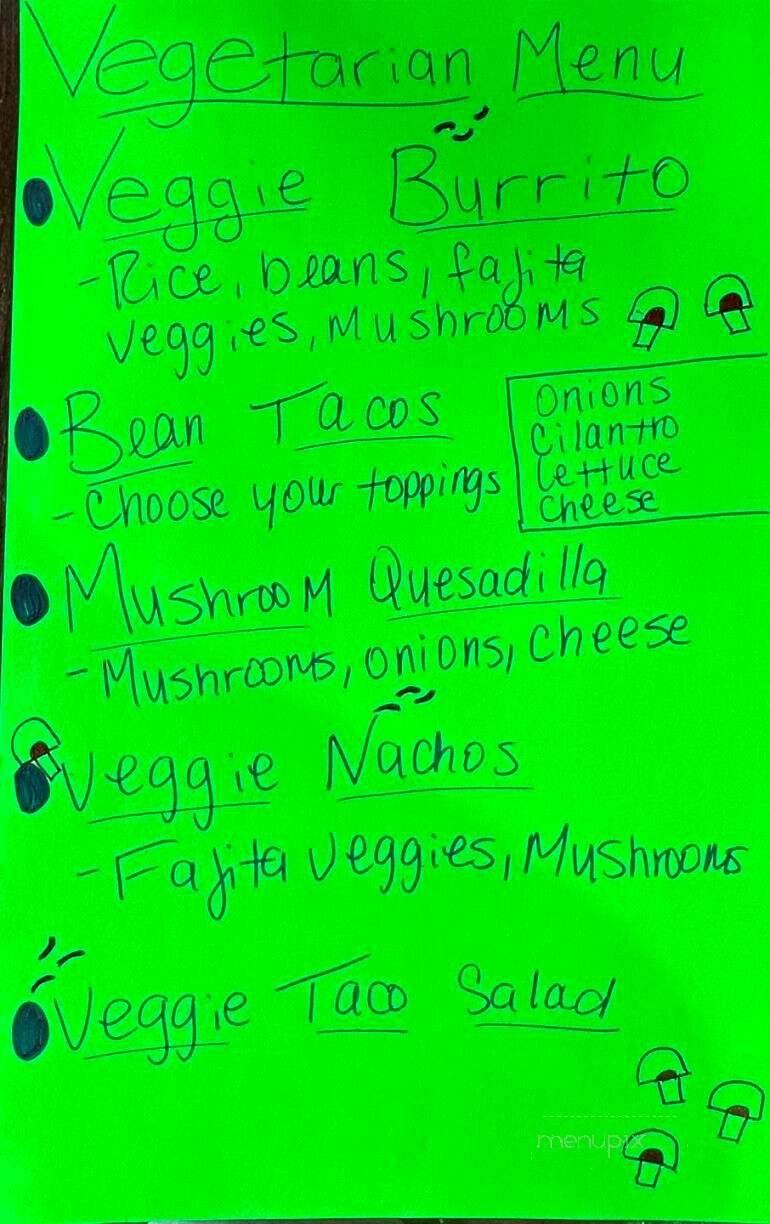 Vegetarian Menu
Veggie Burrito
-Rice, beans, fajita
veggies, Mushrooms
Bean Tacos
-Choose your toppings
Onions
Cilantro
Lettuce
Cheese
Mushroom Quesadilla
-Mushrooms, onions, cheese
Veggie Nachos
-Fajita veggies, Mushrooms
Veggie Taco Salad
menupix